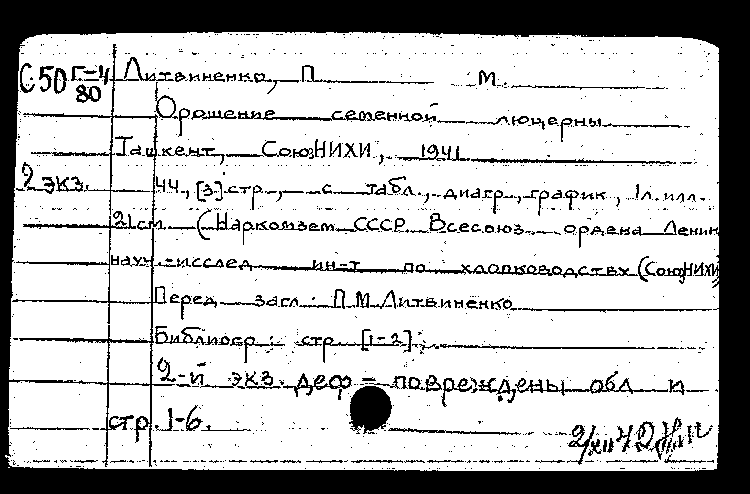 С50 Г-4 Литвиненко, П. М.
80
Орошение семенной люцерны
Ташкент, СоюзНИХИ, 1941
2 экз. 44, [3] стр., с табл., диагр., график, 1 л. илл.
21 см (Наркомзем СССР. Всесоюз. ордена Ленин
науч.-исслед. ин-т по хлопководству (СоюзНИХИ)
Перед загл.: П.М. Литвиненко
Библиогр.: стр. [1-2].
2-й экз. деф - повреждены обл и
стр. 1-6.